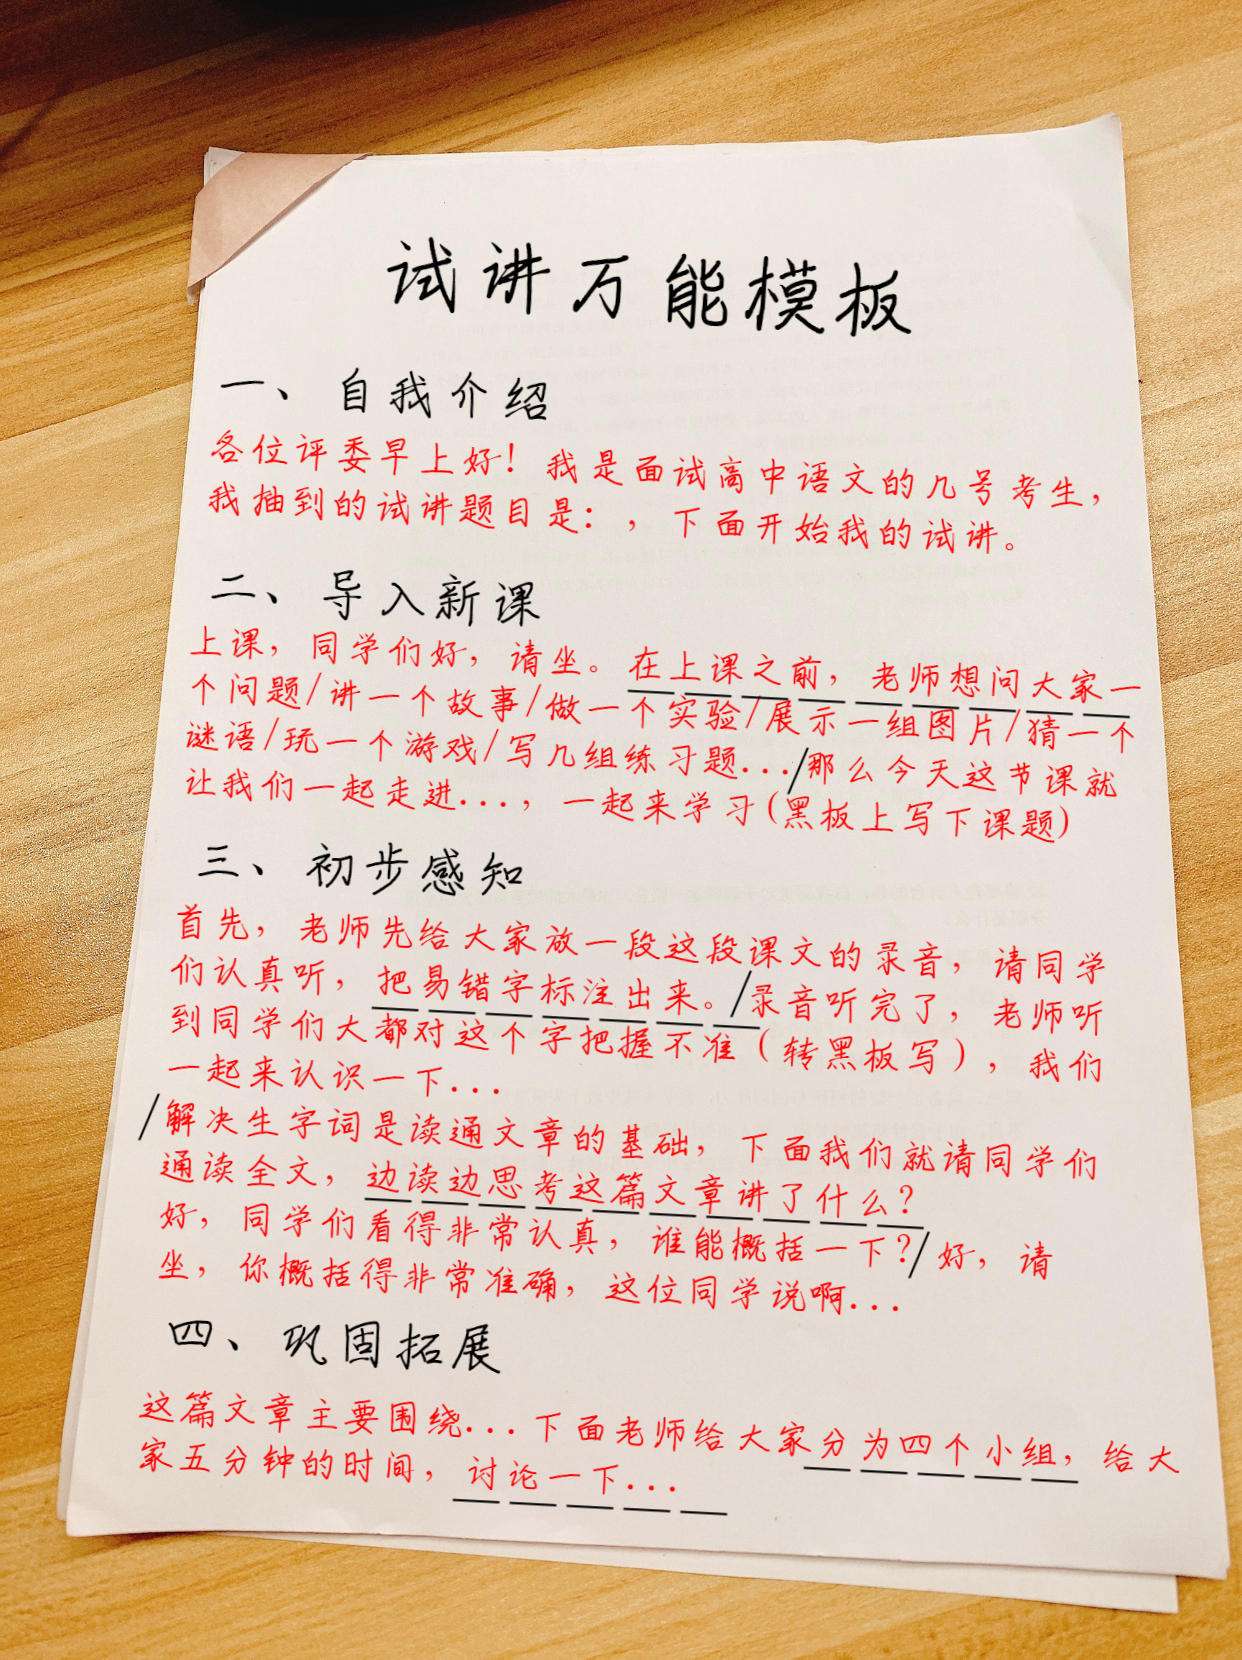 试讲万能模板
一、自我介绍
各位评委早上好!我是面试高中语文的几号考生,
我抽到的试讲题目是:,下面开始我的试讲。
二、导入新课
上课,同学们好,请坐。在上课之前,老师想问大家一
个问题/讲一个故事/做一个实验/展示一组图片/猜一个
谜语/玩一个游戏/写几组练习题.../那么今天这节课就
让我们一起走进...,一起来学习(黑板上写下课题)
三、初步感知
首先,老师先给大家放一段这段课文的录音,请同学
们认真听,把易错字标注出来。/录音听完了,老师听
到同学们大都对这个字把握不准(转黑板写),我们
一起来认识一下...
/解决生字词是读通文章的基础,下面我们就请同学们
通读全文,边读边思考这篇文章讲了什么?
好,同学们看得非常认真,谁能概括一下?/好,请
坐,你概括得非常准确,这位同学说啊...
四、巩固拓展
这篇文章主要围绕...下面老师给大家分为四个小组,给大
家五分钟的时间,讨论一下...